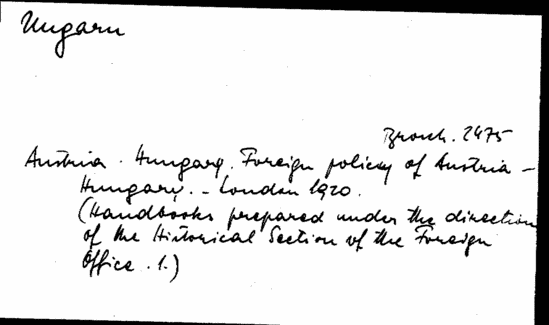 Ungarn
Brosch. 2475
Austria - Hungary. Foreign policy of Austria -
Hungary. - London 1920.
(Handbooks prepared under the direction
of the Historical Section of the Foreign
Office. 1.)